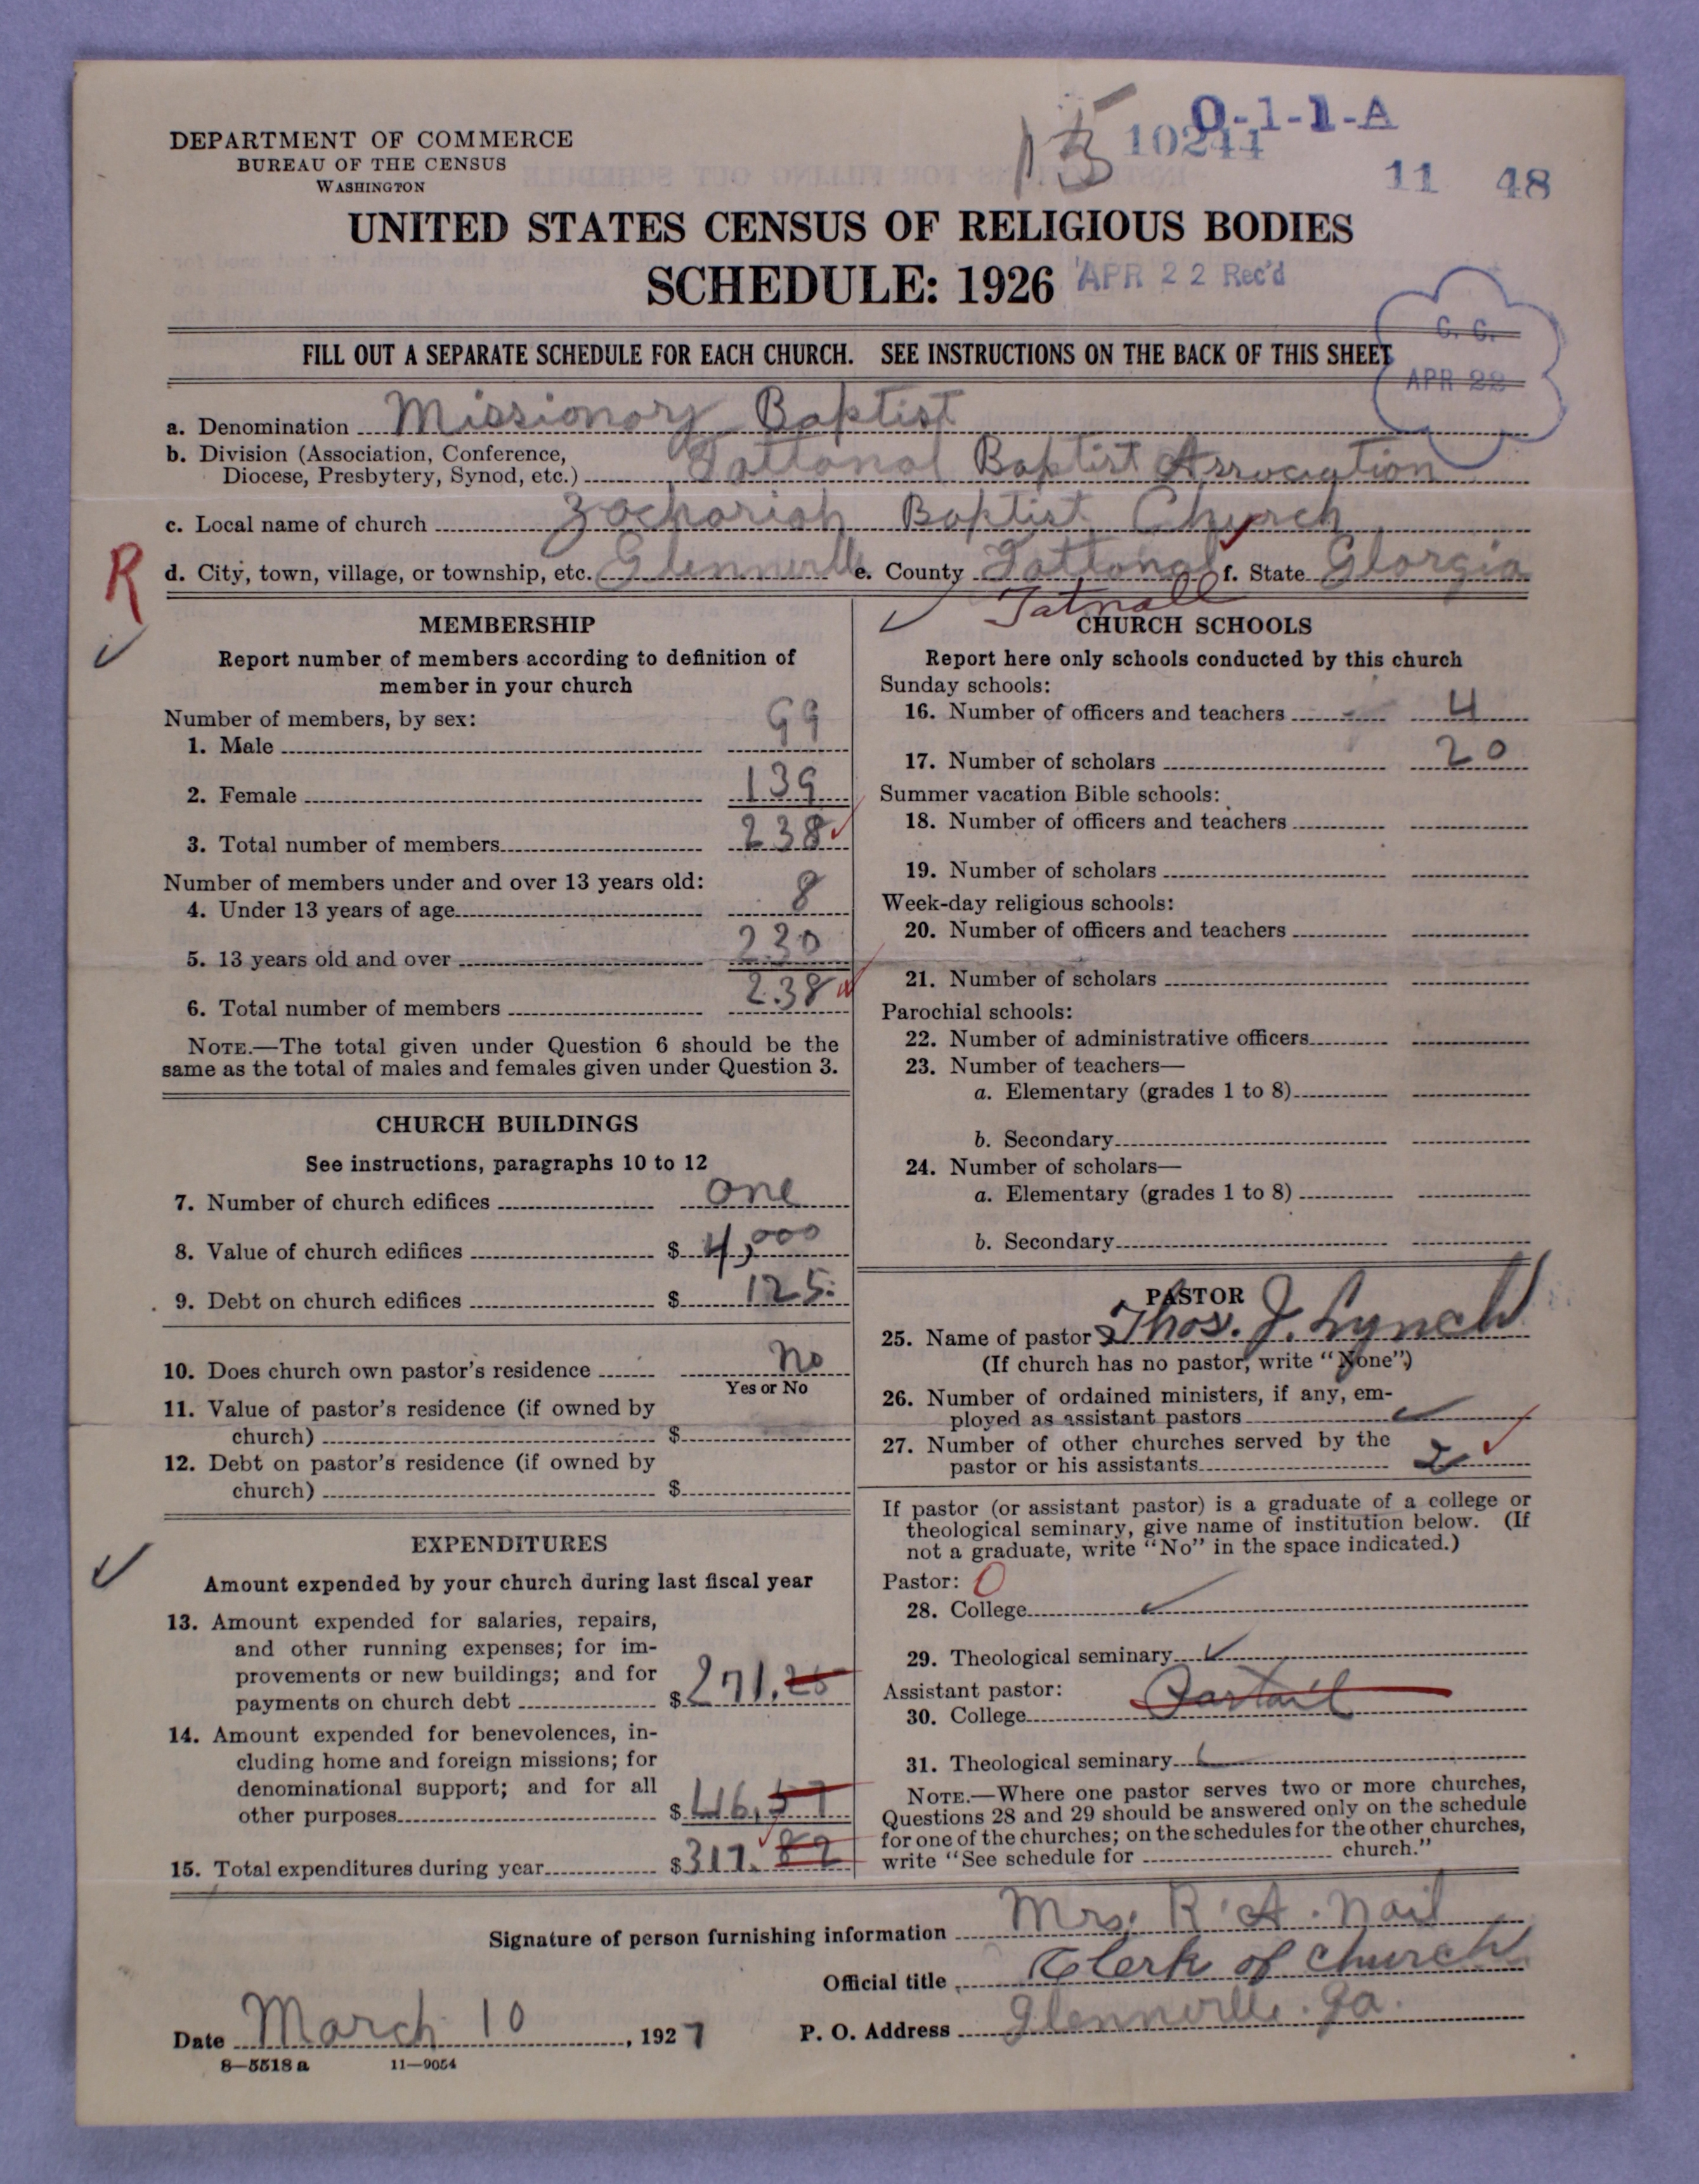 DEPARTMENT OF COMMERCE
BUREAU OF THE CENSUS
WASHINGTON
15 10244 0-1-1-A
11 48
UNITED STATES CENSUS OF RELIGIOUS BODIES
SCHEDULE: 1926 APR 22 Rec'd
C. C.
APR 22
FILL OUT A SEPARATE SCHEDULE FOR EACH CHURCH. SEE INSTRUCTIONS ON THE BACK OF THIS SHEET
a. Denomination Missionary Baptist
b. Division (Association, Conference,
Diocese, Presbytery, Synod, etc.) Tattonal Baptist Association
c. Local name of church Zachariah Baptist Church
R
d. City, town, village, or township, etc. Glennville e. County Tattonal f. State Georgia
Tatnall
MEMBERSHIP
Report number of members according to definition of
member in your church
Number of members, by sex:
1. Male 99
2. Female 139
3. Total number of members 238
Number of members under and over 13 years old:
4. Under 13 years of age 8
5. 13 years old and over 230
6. Total number of members 238
NOTE.—The total given under Question 6 should be the
same as the total of males and females given under Question 3.
CHURCH BUILDINGS
See instructions, paragraphs 10 to 12
7. Number of church edifices one
8. Value of church edifices $ 4,000
9. Debt on church edifices $ 125.
10. Does church own pastor's residence no
Yes or No
11. Value of pastor's residence (if owned by
church) $
12. Debt on pastor's residence (if owned by
church) $
EXPENDITURES
Amount expended by your church during last fiscal year
13. Amount expended for salaries, repairs,
and other running expenses; for im-
provements or new buildings; and for
payments on church debt $ 271.25
14. Amount expended for benevolences, in-
cluding home and foreign missions; for
denominational support; and for all
other purposes $ 46.57
15. Total expenditures during year $ 317.82
CHURCH SCHOOLS
Report here only schools conducted by this church
Sunday schools:
16. Number of officers and teachers 4
17. Number of scholars 20
Summer vacation Bible schools:
18. Number of officers and teachers
19. Number of scholars
Week-day religious schools:
20. Number of officers and teachers
21. Number of scholars
Parochial schools:
22. Number of administrative officers
23. Number of teachers—
a. Elementary (grades 1 to 8)
b. Secondary
24. Number of scholars—
a. Elementary (grades 1 to 8)
b. Secondary
PASTOR
25. Name of pastor Thos. J. Lynch
(If church has no pastor, write "None")
26. Number of ordained ministers, if any, em-
ployed as assistant pastors
27. Number of other churches served by the
pastor or his assistants 2
If pastor (or assistant pastor) is a graduate of a college or
theological seminary, give name of institution below. (If
not a graduate, write "No" in the space indicated.)
Pastor: 0
28. College
29. Theological seminary
Assistant pastor:
30. College
31. Theological seminary
NOTE.—Where one pastor serves two or more churches,
Questions 28 and 29 should be answered only on the schedule
for one of the churches; on the schedules for the other churches,
write "See schedule for church."
Signature of person furnishing information Mrs. R. A. Nail
Official title Clerk of church
Date March 10, 1927 P. O. Address Glennville. Ga.
8—5518 a 11—9054